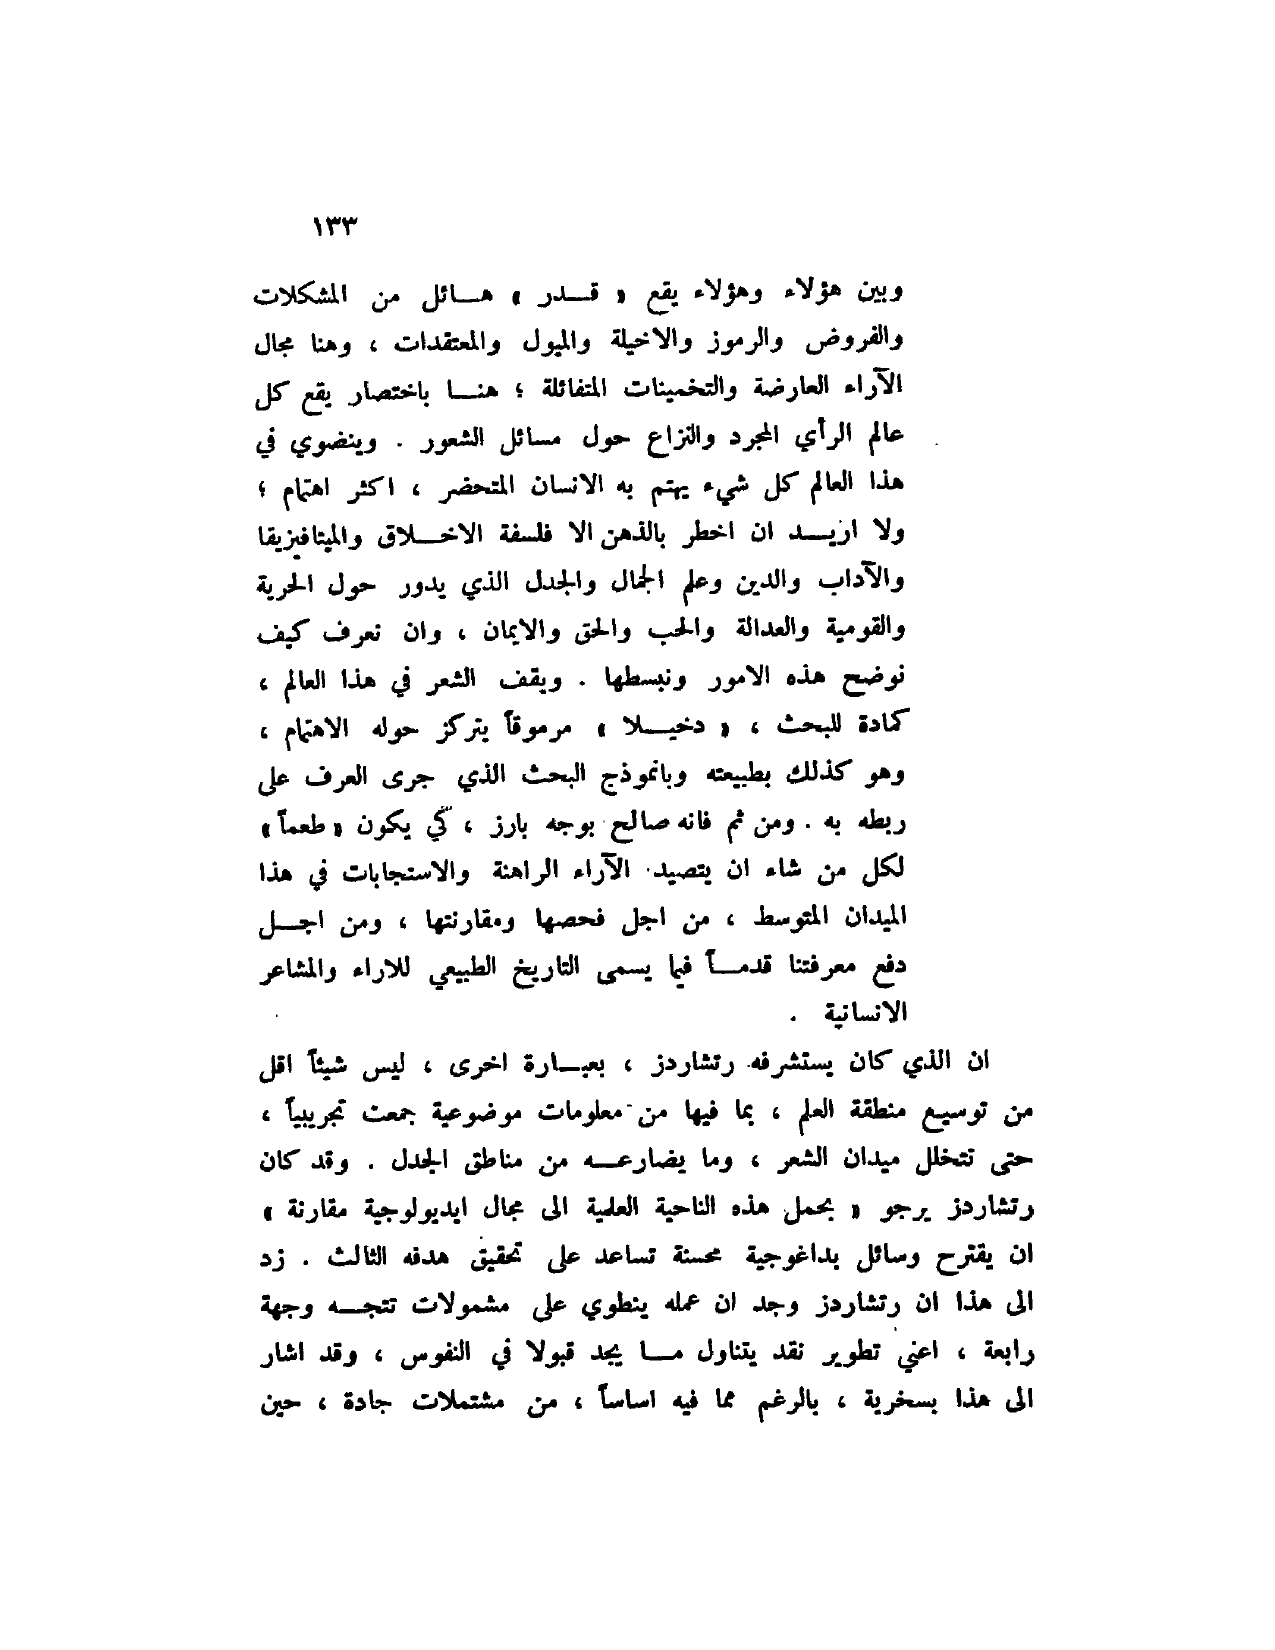 ١٣٣
وبين هؤلاء وهؤلاء يقع « قـــدر » هـــائل من المشكلات
والفروض والرموز والاخيلة والميول والمعتقدات ، وهنا مجال
الآراء العارضة والتخمينات المتفائلة ؛ هنـــا باختصار يقع كل
عالم الرأي المجرد والنزاع حول مسائل الشعور . وينضوي في
هذا العالم كل شيء يهتم به الانسان المتحضر ، اكثر اهتمام ؛
ولا اريـــد ان اخطر بالذهن الا فلسفة الاخـــلاق والميتافيزيقا
والآداب والدين وعلم الجمال والجدل الذي يدور حول الحرية
والقومية والعدالة والحب والحق والايمان ، وان نعرف كيف
نوضح هذه الامور ونبسطها . ويقف الشعر في هذا العالم ،
كمادة للبحث ، « دخيـــلا » مرموقاً يتركز حوله الاهتمام ،
وهو كذلك بطبيعته وبانموذج البحث الذي جرى العرف على
ربطه به . ومن ثم فانه صالح بوجه بارز ، كي يكون « طعماً »
لكل من شاء ان يتصيد الآراء الراهنة والاستجابات في هذا
الميدان المتوسط ، من اجل فحصها ومقارنتها ، ومن اجـــل
دفع معرفتنا قدمـــاً فيما يسمى التاريخ الطبيعي للاراء والمشاعر
الانسانية .
ان الذي كان يستشرفه رتشاردز ، بعبـــارة اخرى ، ليس شيئاً اقل
من توسيع منطقة العلم ، بما فيها من معلومات موضوعية جمعت تجريبياً ،
حتى تتخلل ميدان الشعر ، وما يضارعـــه من مناطق الجدل . وقد كان
رتشاردز يرجو « بحمل هذه الناحية العلمية الى مجال ايديولوجية مقارنة »
ان يقترح وسائل بداغوجية محسنة تساعد على تحقيق هدفه الثالث . زد
الى هذا ان رتشاردز وجد ان عمله ينطوي على مشمولات تتجـــه وجهة
رابعة ، اعني تطوير نقد يتناول مـــا يجد قبولا في النفوس ، وقد اشار
الى هذا بسخرية ، بالرغم مما فيه اساساً ، من مشتملات جادة ، حين